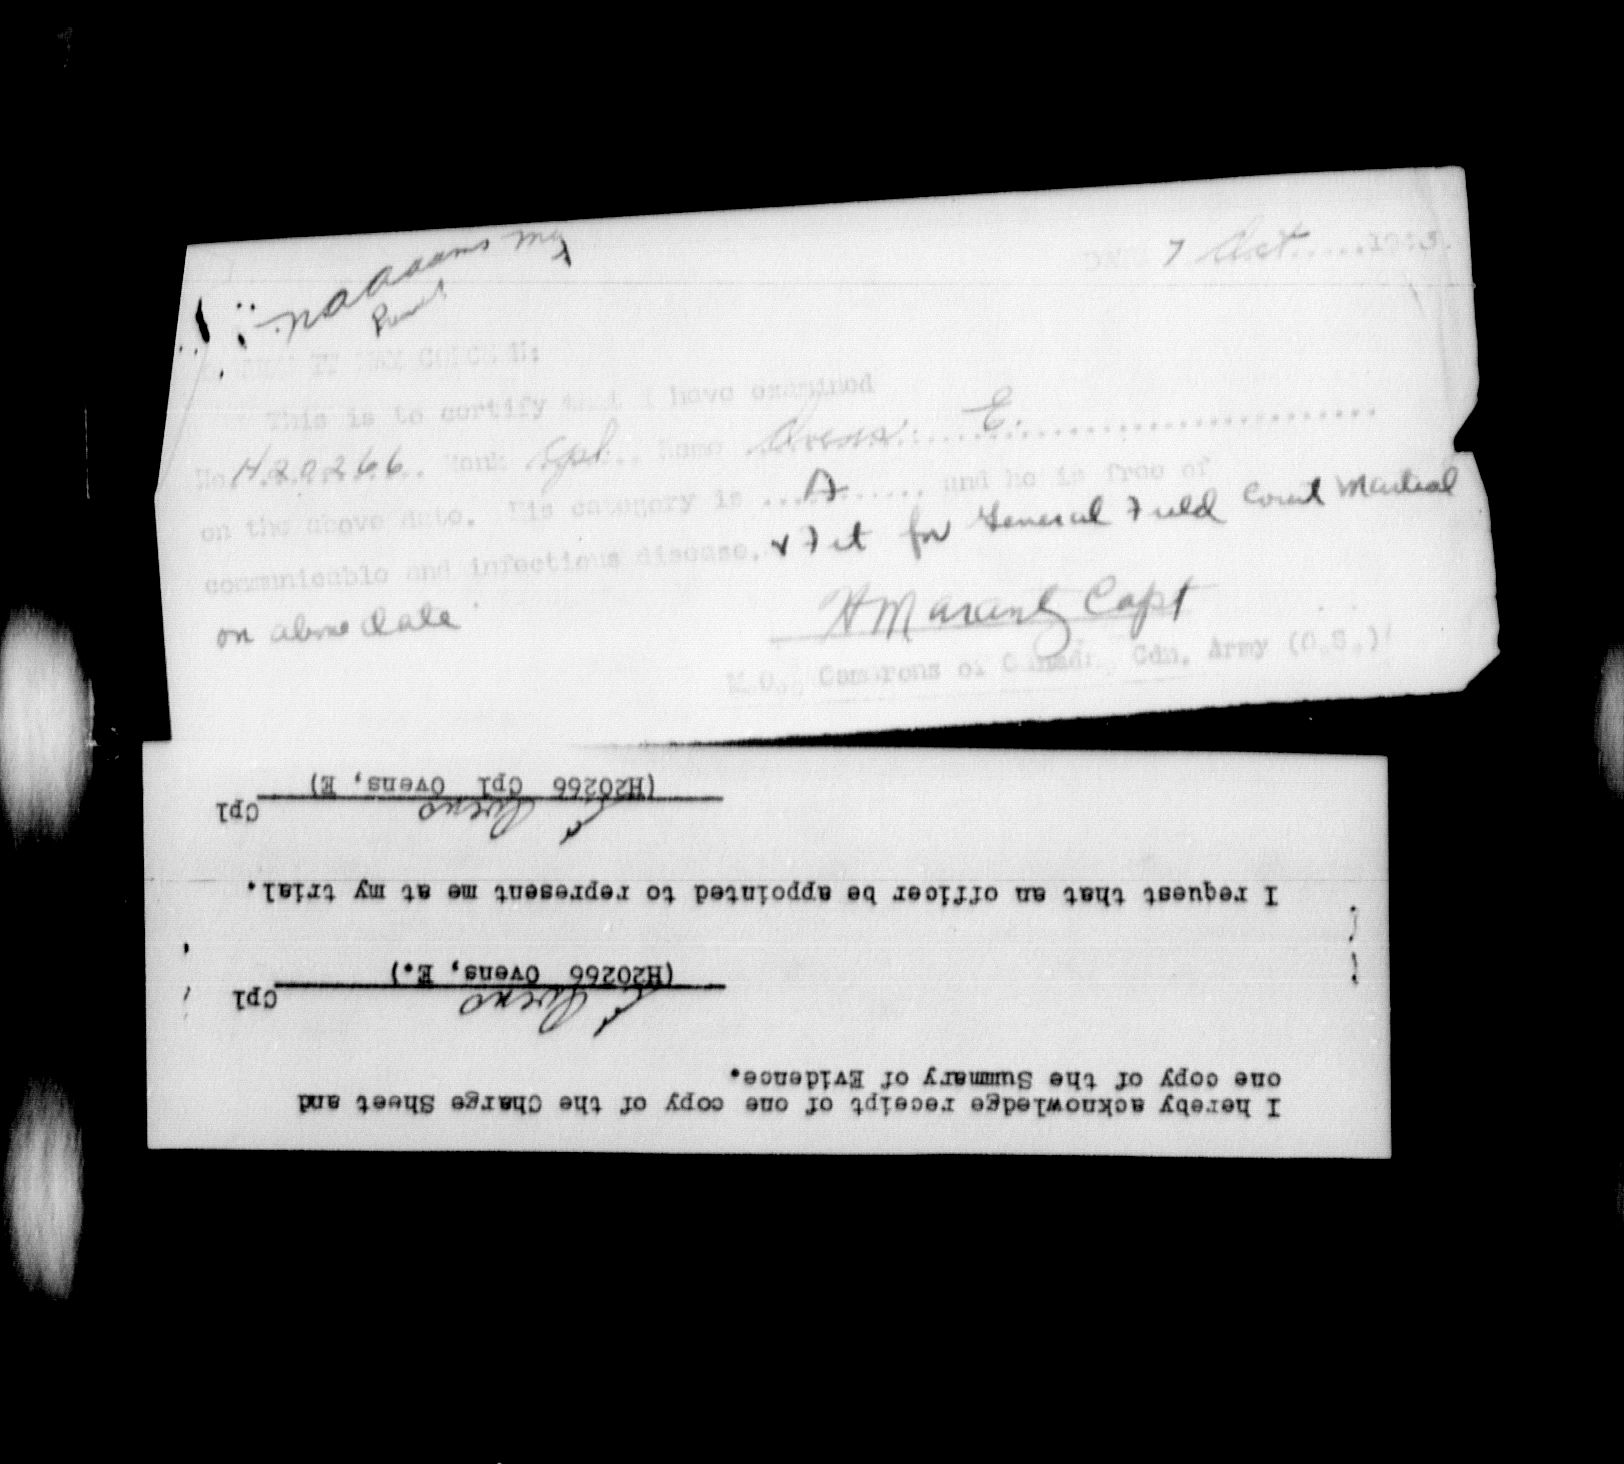 N A Adams Maj
7 Oct.....1943.
TO WHOM IT MAY CONCERN:
This is to certify that I have examined
No. H.20266.. Rank Cpl.. Name Ovens.. E.
on the above date. His category is ....A........ and he is free of
communicable and infectious disease. & Fit for General Field Court Martial
on above date
H Marantz Capt
M.O., Camerons of Canada, Cdn. Army (O.S.)
I hereby acknowledge receipt of one copy of the Charge Sheet and
one copy of the Summary of Evidence.
E Ovens Cpl
(H20266 Ovens, E.)
I request that an officer be appointed to represent me at my trial.
E Ovens Cpl
(H20266 Cpl Ovens, E)